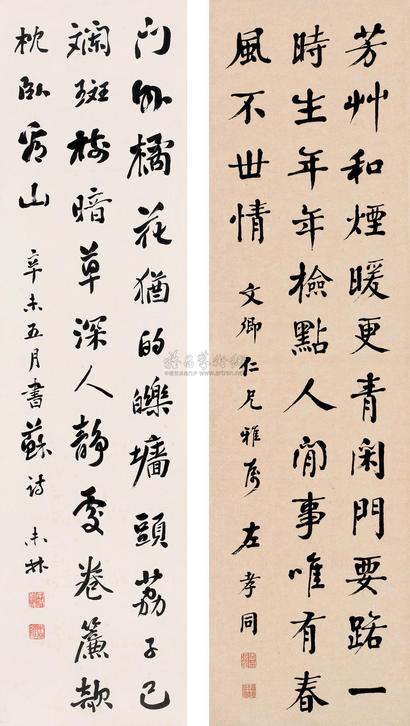 芳艸和煙暖更青闲門要路一
時生年年檢點人間事唯有春
風不世情 文卿仁兄雅屬 左孝同
門外橘花猶的皪墻頭荔子已
斕斑樹暗草深人靜處卷簾欹
枕臥看山 辛未五月書蘇詩
雅昌藝術網